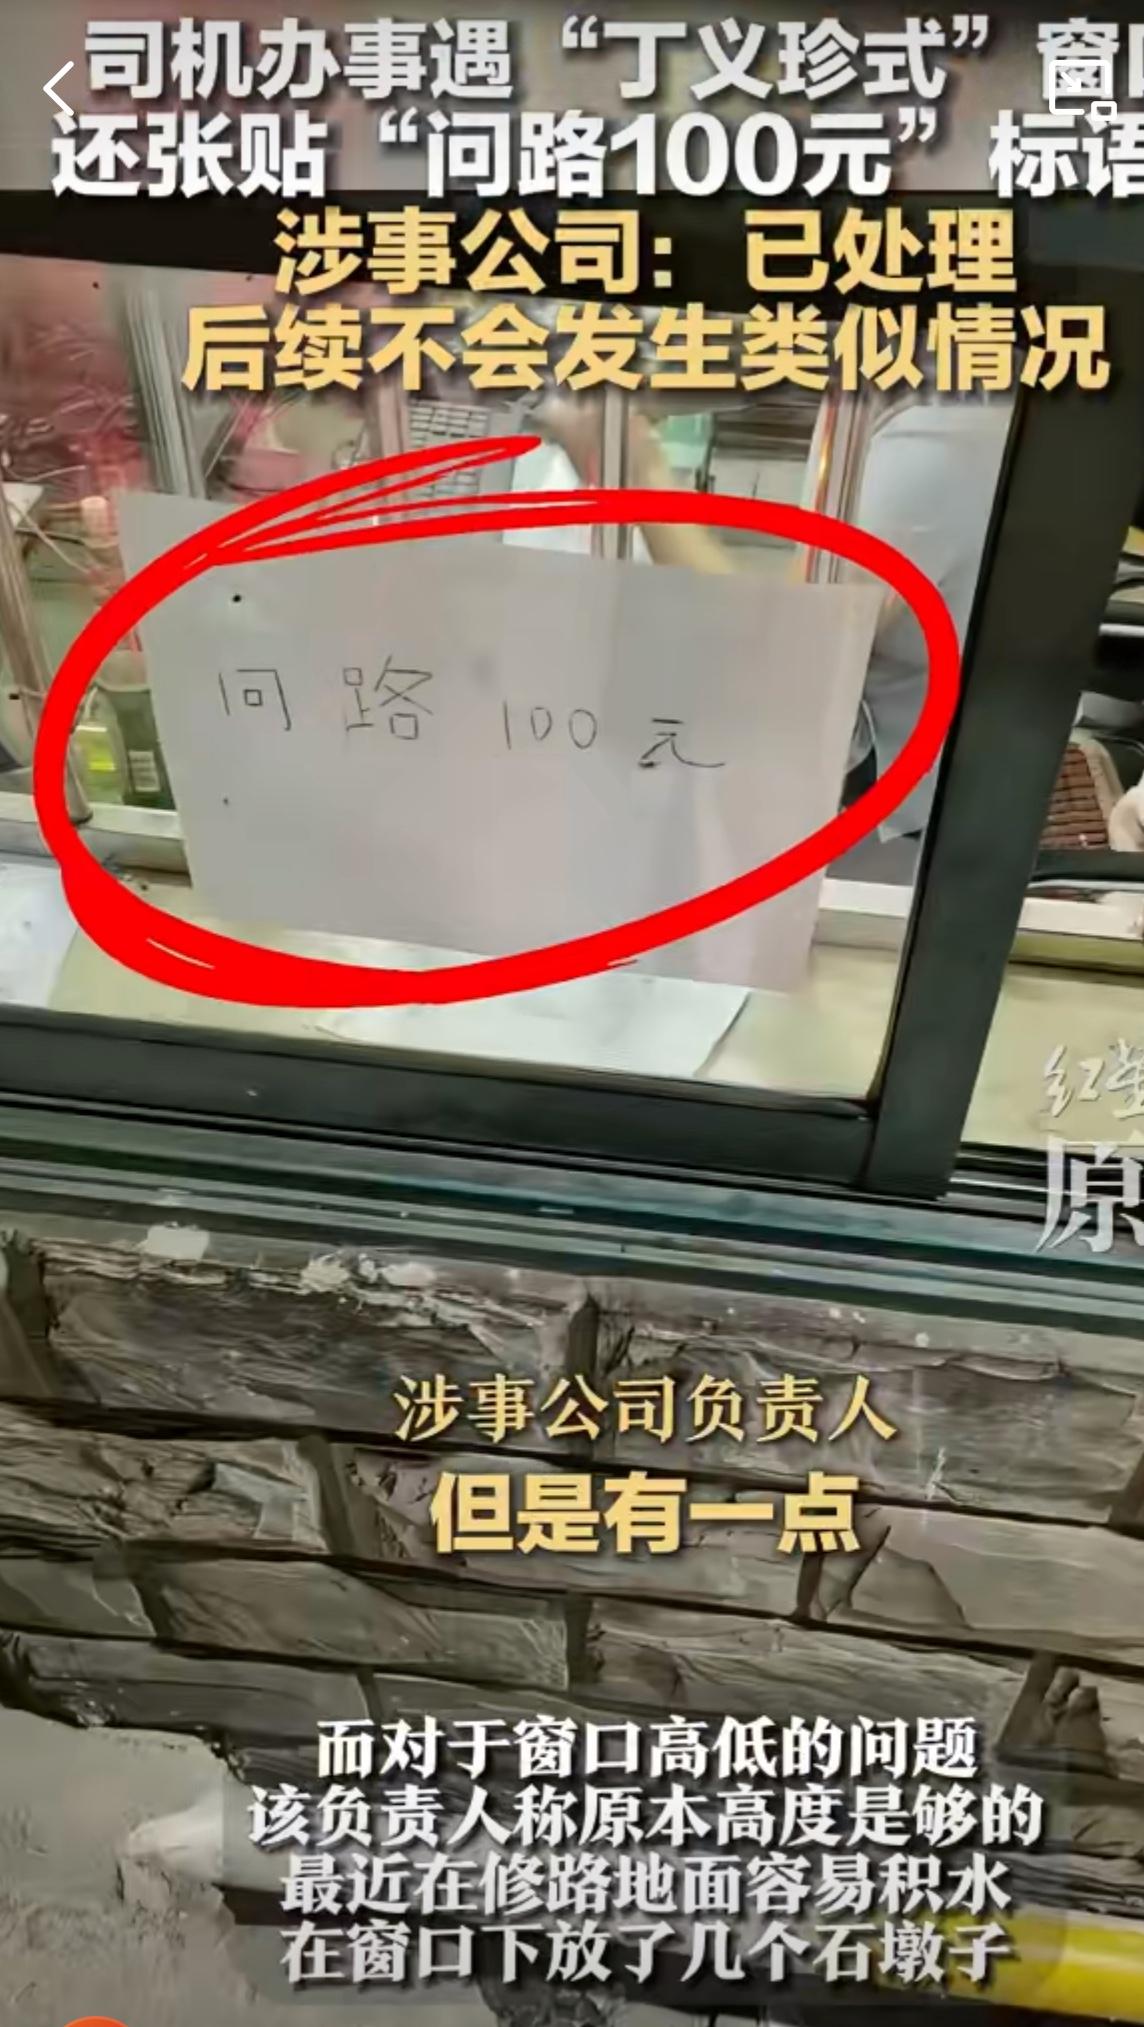 司机办事遇“丁义珍式”窗口
还张贴“问路100元”标语
涉事公司：已处理
后续不会发生类似情况
问路 100元
红星
原
涉事公司负责人
但是有一点
而对于窗口高低的问题
该负责人称原本高度是够的
最近在修路地面容易积水
在窗口下放了几个石墩子